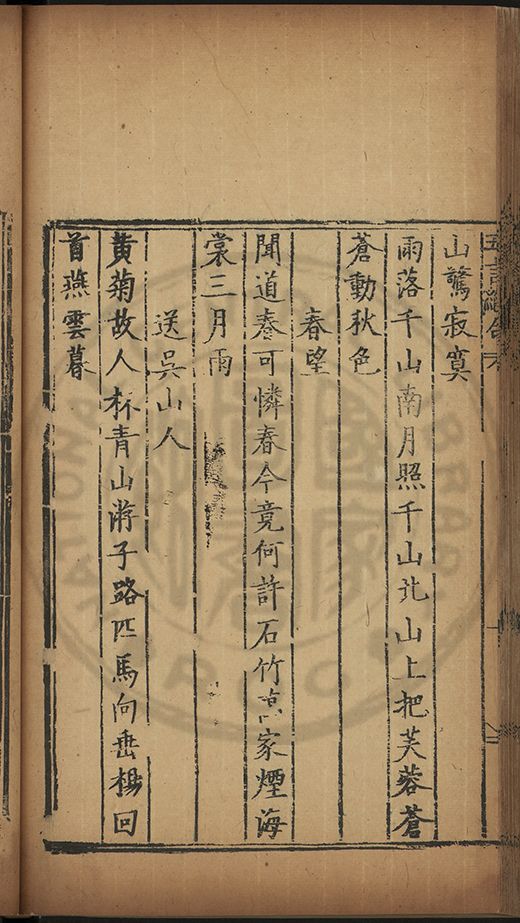 五言
山驚寂寞
雨落千山南月照千山北山上把芙蓉蒼
蒼動秋色
春望
聞道春可憐春今竟何許石竹萬家煙海
裳三月雨
送吳山人
黄菊故人杯青山游子路匹馬向垂楊回
首燕雲暮